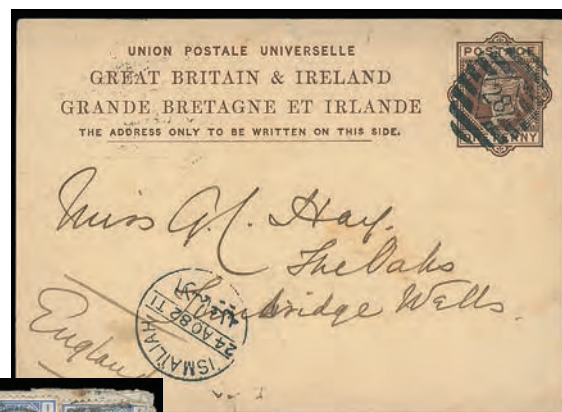 UNION POSTALE UNIVERSELLE
GREAT BRITAIN & IRELAND
GRANDE BRETAGNE ET IRLANDE
THE ADDRESS ONLY TO BE WRITTEN ON THIS SIDE.
POSTAGE
ONE PENNY
Miss G. C. Hay.
The Oaks
Tunbridge Wells.
England
ISMAÏLIAH
24 AO 82 T1